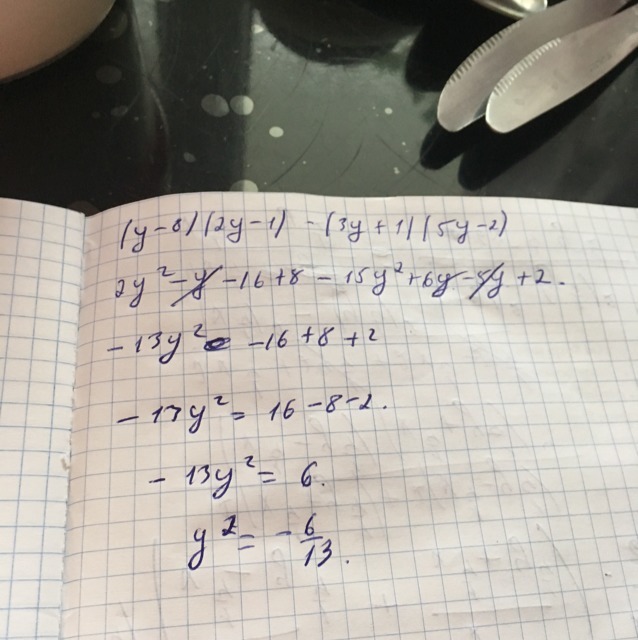 (y-8)(2y-1) - (3y+1)(5y-2)
2y² - y - 16 + 8 - 15y² + 6y - 5y + 2.
- 13y² - 16 + 8 + 2
- 13y² = 16 - 8 - 2.
- 13y² = 6.
y² = - 6/13.